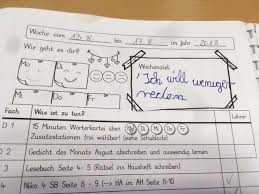 Woche vom 13.8. bis 17.8. im Jahr 2018
Wie geht es dir?
Wochenziel:
Mo Di
"Ich will weniger reden
Mi Do Fr
Fach Was ist zu tun? Lehrer
D 1 15 Minuten Wörterkartei üben Mo Di Mi Do Fr
Zusatzstationen frei wählbar! (siehe Schublade)
D 2 Gedicht des Monats August abschreiben und auswendig lernen
D 3 Lesebuch Seite 4- 5 (Rätsel ins Hausheft schreiben)
Niko 4 SB Seite 8 - 9 (--> HA im AH Seite 8-10